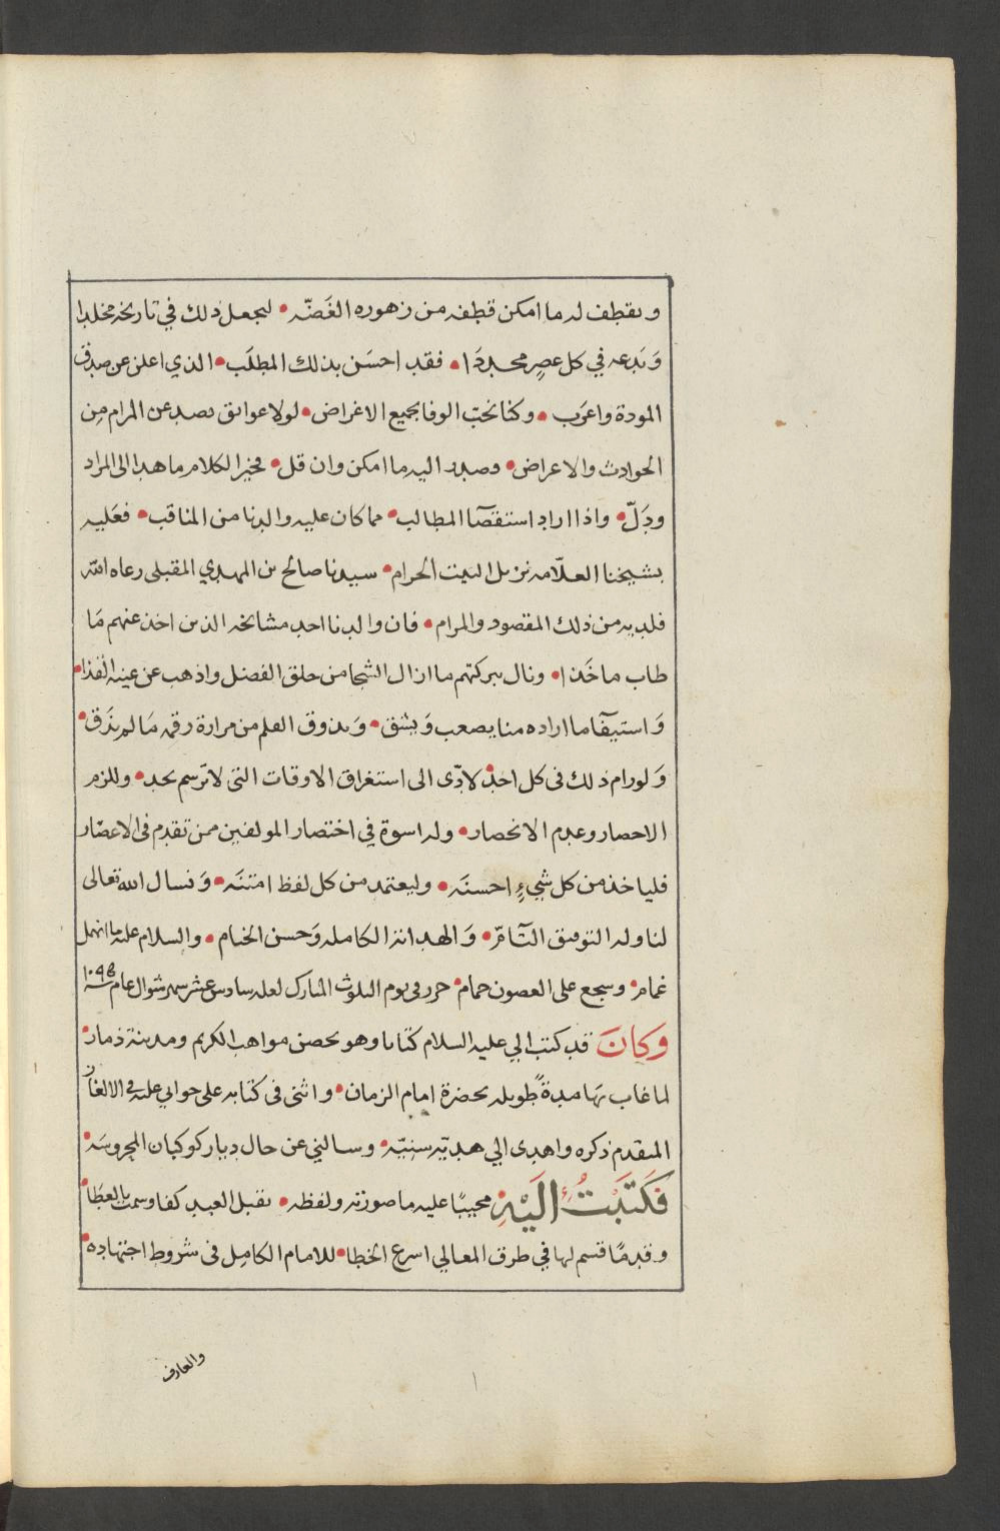 ويقطف له ما امكن قطفه من زهوره الغَضّه • ليجعل ذلك في تاريخه مخلدا
وَيدعه في كل عصرٍ مجددَا • فقد احسَن بذلك المطلَب • الذي اعلن عن صدق
المودة واعرَب • وكنا نحبّ الوفا بجميع الاغراض • لولا عوايق تصد عن المرام مِن
الحوادث والاعراض • وصدر اليه ما امكن وان قل • فخير الكلام ما هدا الى المراد
ودَلّ • واذا اراد استقصَآ المطالب • مما كان عليه والدنا من المناقب • فعَليه
بشيخنا العلّامه نزيل البيت الحرام • سيدنا صالح بن المهدي المقبلي رعاه الله
فلديه من ذلك المقصود والمرام • فان والدنا احد مشايخه الذين اخذ عنهم مَا
طاب ماخَذا • ونال ببركتهم ما ازال الشجا من حلق الفضل واذهب عن عينه القذا •
وَاستيفآ ما اراده منا يصعب وَيشق • وَيذوق القلم من مرارة رقمه مَا لم يذق •
وَلو رام ذلك في كل احدٍ لادّى الى استغراق الاوقات التي لا ترسم بحد • وللزم
الاحصار وعدم الانحصار • وله اسوة في اختصار المولفين ممن تقدم في الاعصَار
فلياخذ من كل شيءٍ احسنَه • وليعتمد من كل لفظ امتنَه • وَنسال الله تعالى
لنا وله التوفيق التآمّ • وَالهداية الكامله وَحسن الختام • والسلام عليه ما انهل
غمام • وسجع على الغصون حمام • حرر في يوم الثلوث المبارك لعله سادس عشر شهر شوال عام سنة
وَكانَ قد كتب الي عليه السلام كتابا وهو بحصن مواهب الكريم ومدينة ذمار •
لما غاب بهَا مدةً طويله بحضرة امام الزمان • واثنى في كتابه على جوابي عليه في الالغاز
المتقدم ذكره واهدى الي هديّه سنيّه • وسالني عن حال ديار كوكبان المحروسَه •
فَكَتَبْتُ الَيْهِ مجيبًا عليه ما صورته ولفظه • يقبل العبد كفا وسمت بالعطَا •
وقدمًا قسم لها في طرق المعالي اسرع الخطا • للامام الكامِل في شروط اجتهاده •
والعارف